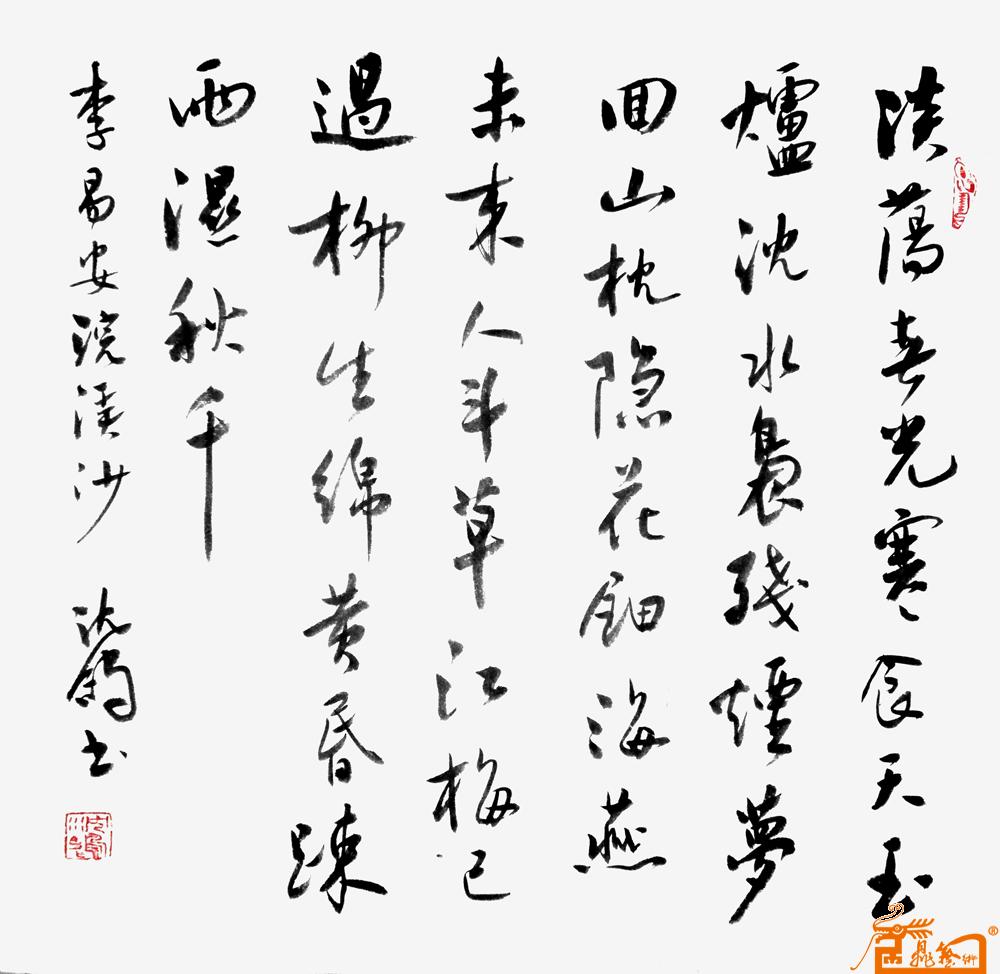 淡蕩春光寒食天玉
爐沈水裊殘煙夢
回山枕隐花鈿海燕
未来人斗草江梅已
過柳生綿黄昏踈
雨濕秋千
李易安浣溪沙
书